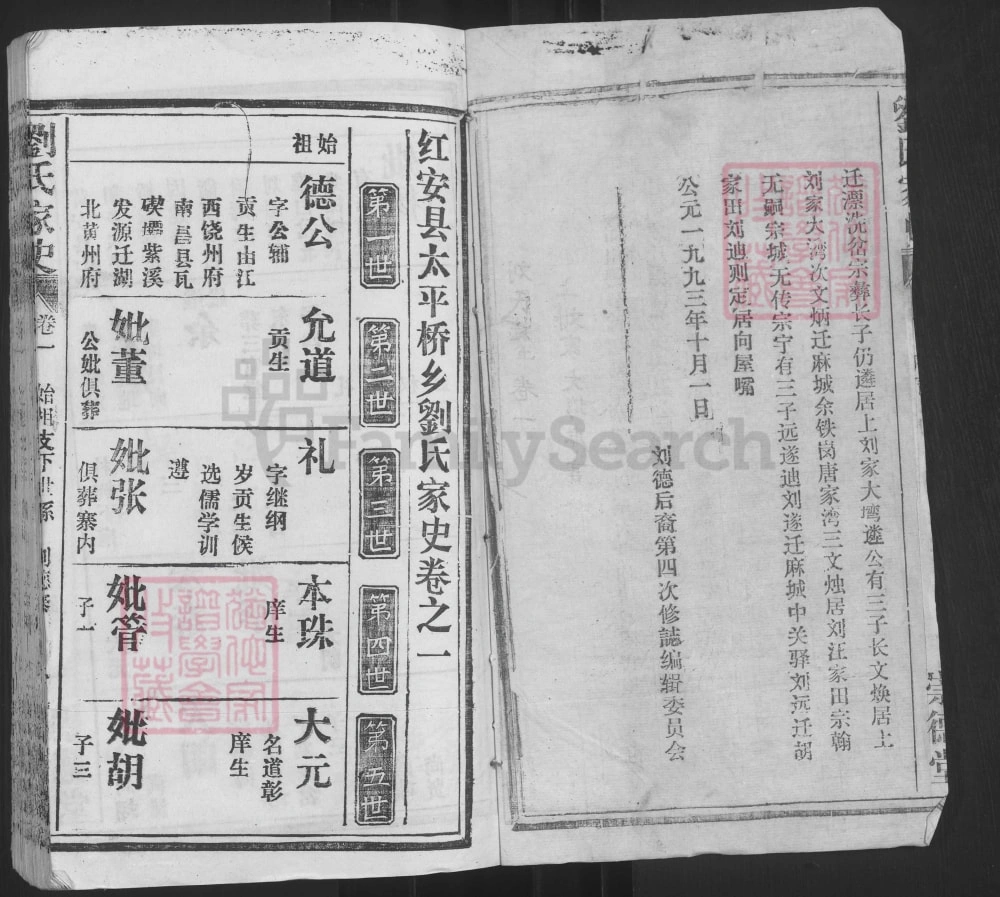 迁漂洗岔宗彝长子仍遴居上刘家大塆遴公有三子长文焕居上
刘家大湾次文炳迁麻城余铁岗唐家湾三文烛居刘汪家田宗翰
无嗣宗城无传宗宁有三子远遂迪刘遂迁麻城中关驿刘远迁胡
家田刘迪则定居向屋嘴
公元一九九三年十月一日
刘德后裔第四次修誌编辑委员会
红安县太平桥乡劉氏家史卷之一
第一世
第二世
第三世
第四世
第五世
始祖
德公
字公辅
贡生由江
西饶州府
南昌县瓦
礤壩紫溪
发源迁湖
北黄州府
允道
贡生
妣董
公妣俱葬
礼
字继纲
岁贡生候
选儒学训
遵
妣张
俱葬寨内
本珠
庠生
妣管
子一
大元
名道彰
庠生
妣胡
子三
劉氏家史
卷一
始祖支下世系
FamilySearch